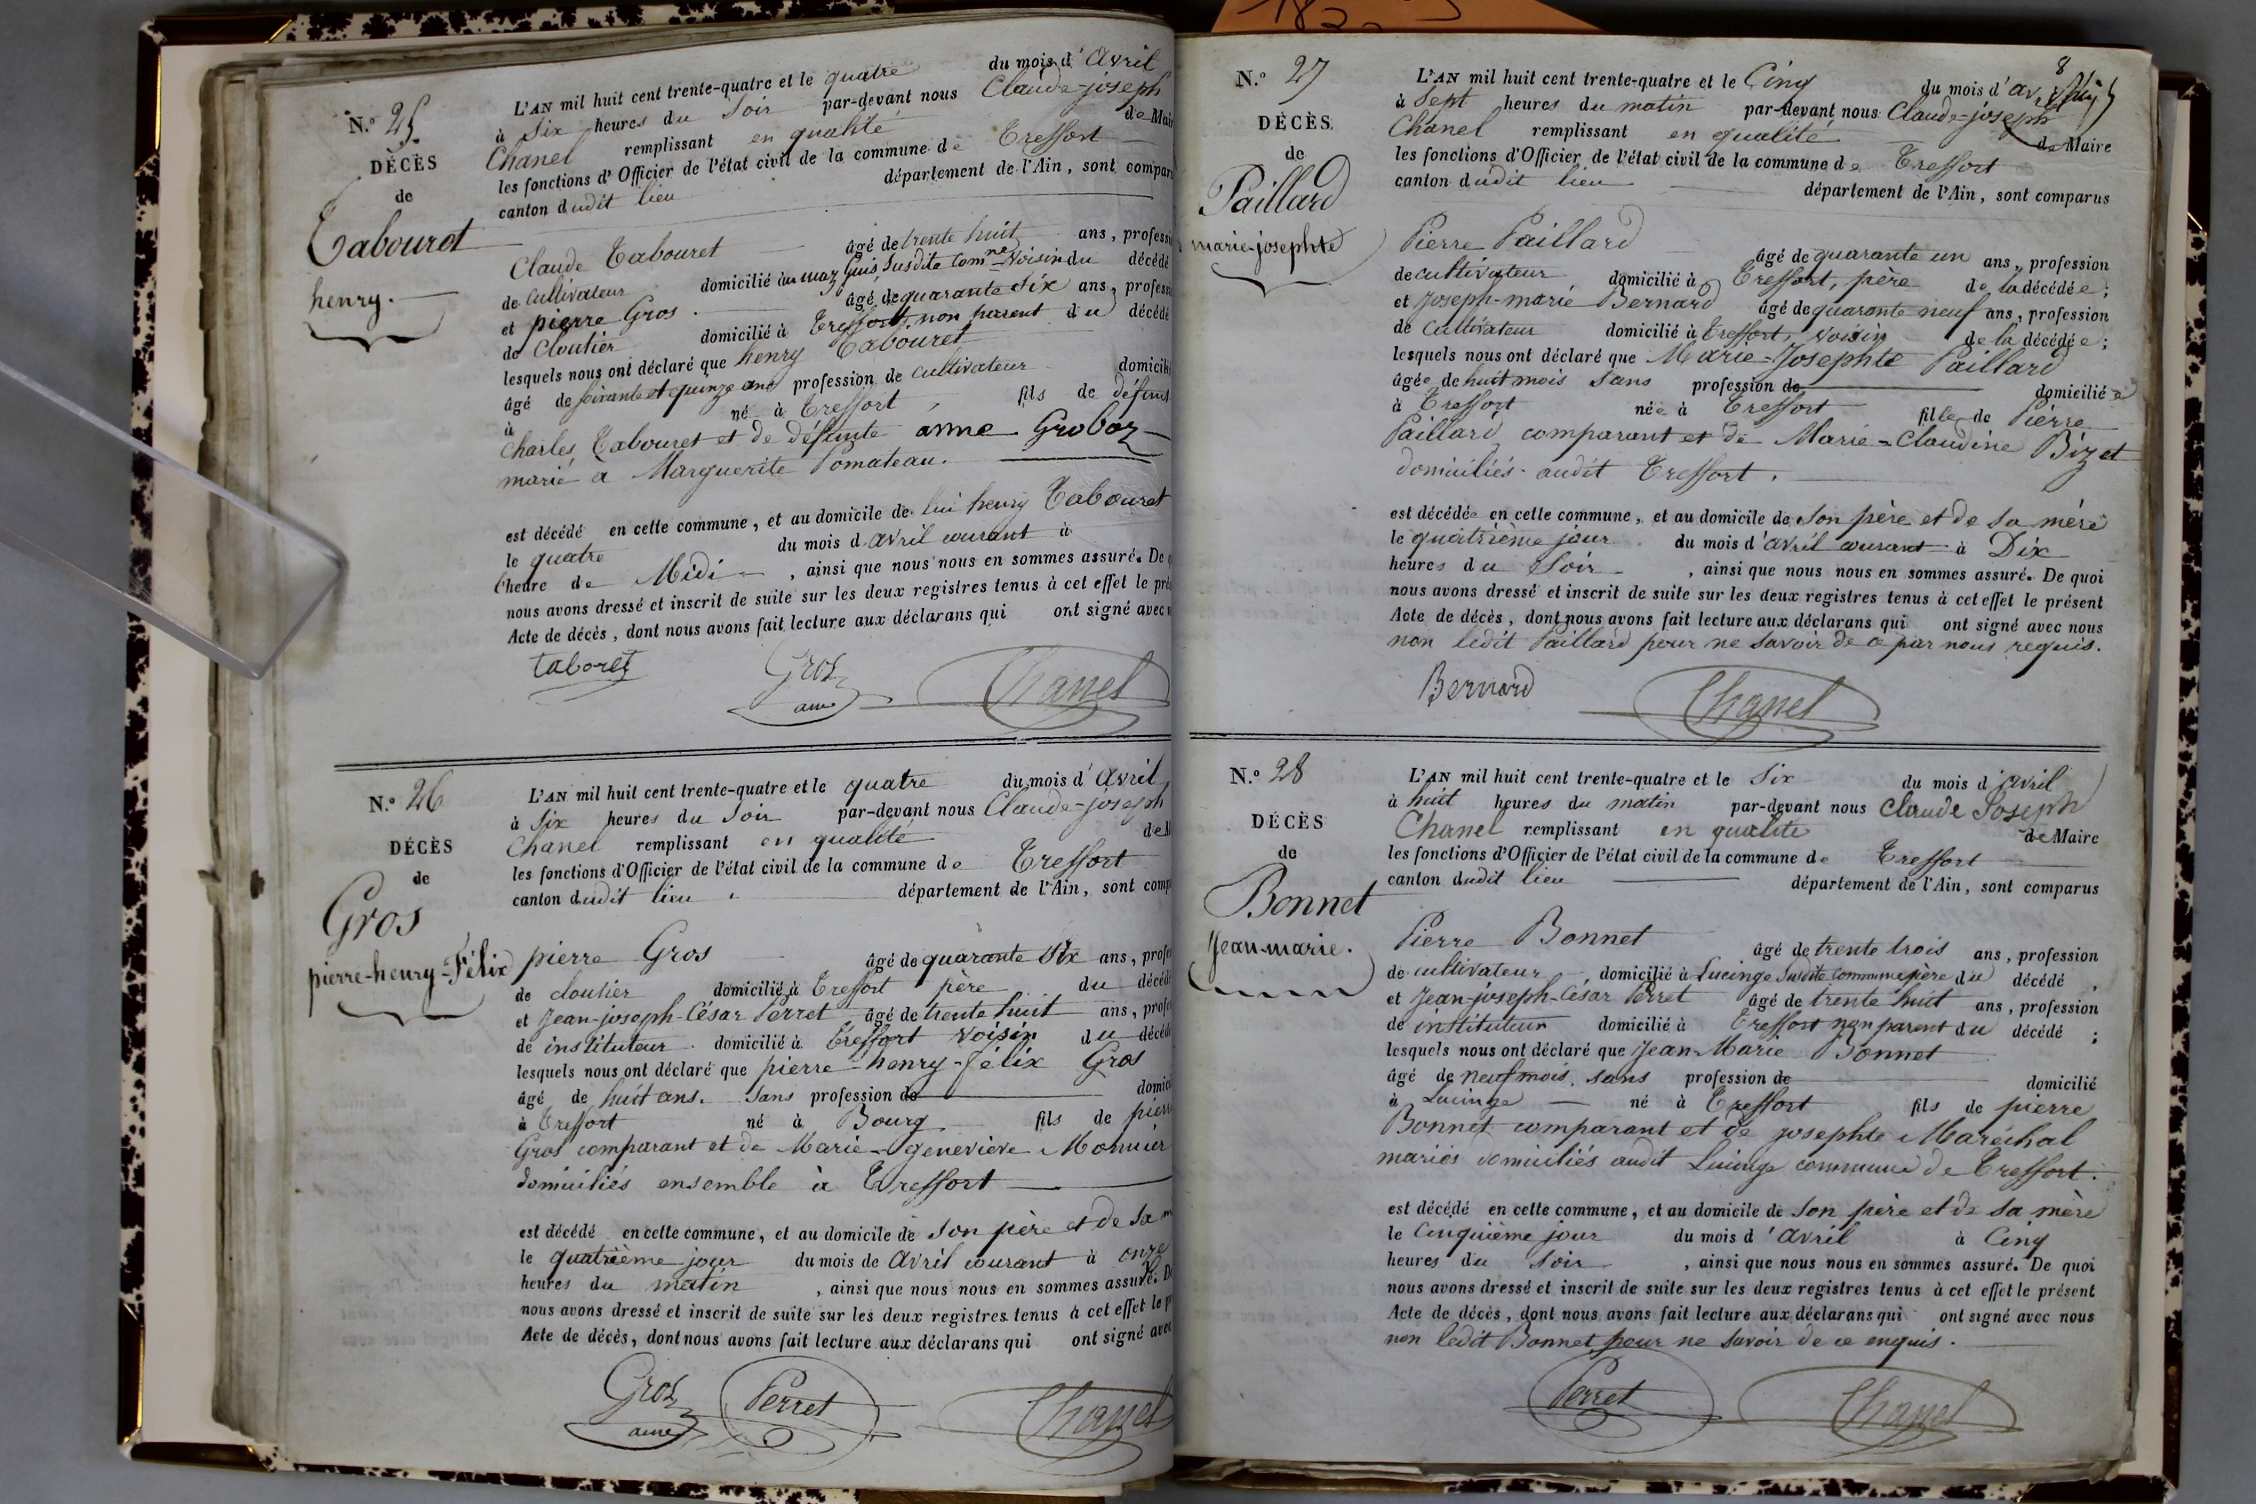 N.º 25.
DÉCÈS
de
Tabouret
henry.
L'AN mil huit cent trente-quatre et le quatre du mois d'Avril
à Six heures du Soir par-devant nous Claude-joseph
Chanel remplissant en qualité de Mair
les fonctions d'Officier de l'état civil de la commune de Treffort
canton dudit lieu département de l'Ain, sont compar
Claude Tabouret âgé de trente huit ans, professi
de Cultivateur domicilié au maz Guis, Susdite Comne Voisin du décédé
et pierre Gros. âgé de quarante Six ans, profess
de Cloutier domicilié à Treffort, non parent du décédé
lesquels nous ont déclaré que henry Tabouret
âgé de soixante et quinze ans profession de cultivateur domicili
à né à Treffort, fils de défunt
Charles Tabouret et de défunte anne Groboz
marié a Marguerite Pomateau.
est décédé en cette commune, et au domicile de lui henry Tabouret
le quatre du mois d'avril courant à
l'heure de Midi, ainsi que nous nous en sommes assuré. De q
nous avons dressé et inscrit de suite sur les deux registres tenus à cet effet le pré
Acte de décès, dont nous avons fait lecture aux déclarans qui ont signé avec n
taboret Groz aine Chanel
N.º 26
DÉCÈS
de
Gros
pierre-henry-Félix
L'AN mil huit cent trente-quatre et le quatre du mois d'Avril
à Six heures du Soir par-devant nous Claude-joseph
Chanel remplissant en qualité de M
les fonctions d'Officier de l'état civil de la commune de Treffort
canton dudit lieu département de l'Ain, sont comp
pierre Gros âgé de quarante Six ans, profes
de cloutier domicilié à Treffort père du décéd
et Jean-joseph-César Perret âgé de trente huit ans, profe
de instituteur. domicilié à Treffort Voisin du décéd
lesquels nous ont déclaré que pierre-henry-félix Gros
âgé de huit ans. Sans profession de domici
à Treffort né à Bourg fils de pierre
Gros comparant et de Marie-geneviève Monnier
domiciliés ensemble à Treffort
est décédé en cette commune, et au domicile de Son père et de Sa m
le quatrième jour du mois de Avril courant à onze
heures du matin, ainsi que nous nous en sommes assuré. D
nous avons dressé et inscrit de suite sur les deux registres tenus à cet effet le p
Acte de décès, dont nous avons fait lecture aux déclarans qui ont signé avec
Groz aine Perret Chanel
8
N.º 27
DÉCÈS
de
Paillard
marie-josephte
L'AN mil huit cent trente-quatre et le Cinq du mois d'avril
à Sept heures du matin par-devant nous Claude-joseph
Chanel remplissant en qualité de Maire
les fonctions d'Officier de l'état civil de la commune de Treffort
canton dudit lieu département de l'Ain, sont comparus
Pierre Paillard âgé de quarante un ans, profession
de cultivateur domicilié à Treffort, père de la décédée;
et Joseph-marie Bernard âgé de quarante neuf ans, profession
de Cultivateur domicilié à Treffort, Voisin de la décédée;
lesquels nous ont déclaré que Marie-Josephte Paillard
âgée de huit mois Sans profession de domiciliée
à Treffort née à Treffort fille de Pierre
Paillard comparant et de Marie-Claudine Bizet
domiciliés audit Treffort.
est décédée en cette commune, et au domicile de Son père et de Sa mère
le quatrième jour du mois d'avril courant à Dix
heures du Soir, ainsi que nous nous en sommes assuré. De quoi
nous avons dressé et inscrit de suite sur les deux registres tenus à cet effet le présent
Acte de décès, dont nous avons fait lecture aux déclarans qui ont signé avec nous
non ledit Paillard pour ne savoir de ce par nous requis.
Bernard Chanel
N.º 28
DÉCÈS
de
Bonnet
Jean-marie.
L'AN mil huit cent trente-quatre et le Six du mois d'avril
à huit heures du matin par-devant nous Claude Joseph
Chanel remplissant en qualité de Maire
les fonctions d'Officier de l'état civil de la commune de Treffort
canton dudit lieu département de l'Ain, sont comparus
Pierre Bonnet âgé de trente trois ans, profession
de cultivateur, domicilié à Lucinge Susdite Commune père du décédé
et Jean-joseph-César Perret âgé de trente huit ans, profession
de instituteur domicilié à Treffort non parent du décédé;
lesquels nous ont déclaré que Jean-Marie Bonnet
âgé de neuf mois, sans profession de domicilié
à Lucinge né à Treffort fils de pierre
Bonnet comparant et de josephte Maréchal
mariés domiciliés audit Lucinge commune de Treffort.
est décédé en cette commune, et au domicile de Son père et de sa mère
le Cinquième jour du mois d'avril à Cinq
heures du Soir, ainsi que nous nous en sommes assuré. De quoi
nous avons dressé et inscrit de suite sur les deux registres tenus à cet effet le présent
Acte de décès, dont nous avons fait lecture aux déclarans qui ont signé avec nous
non ledit Bonnet pour ne savoir de ce enquis.
Perret Chanel